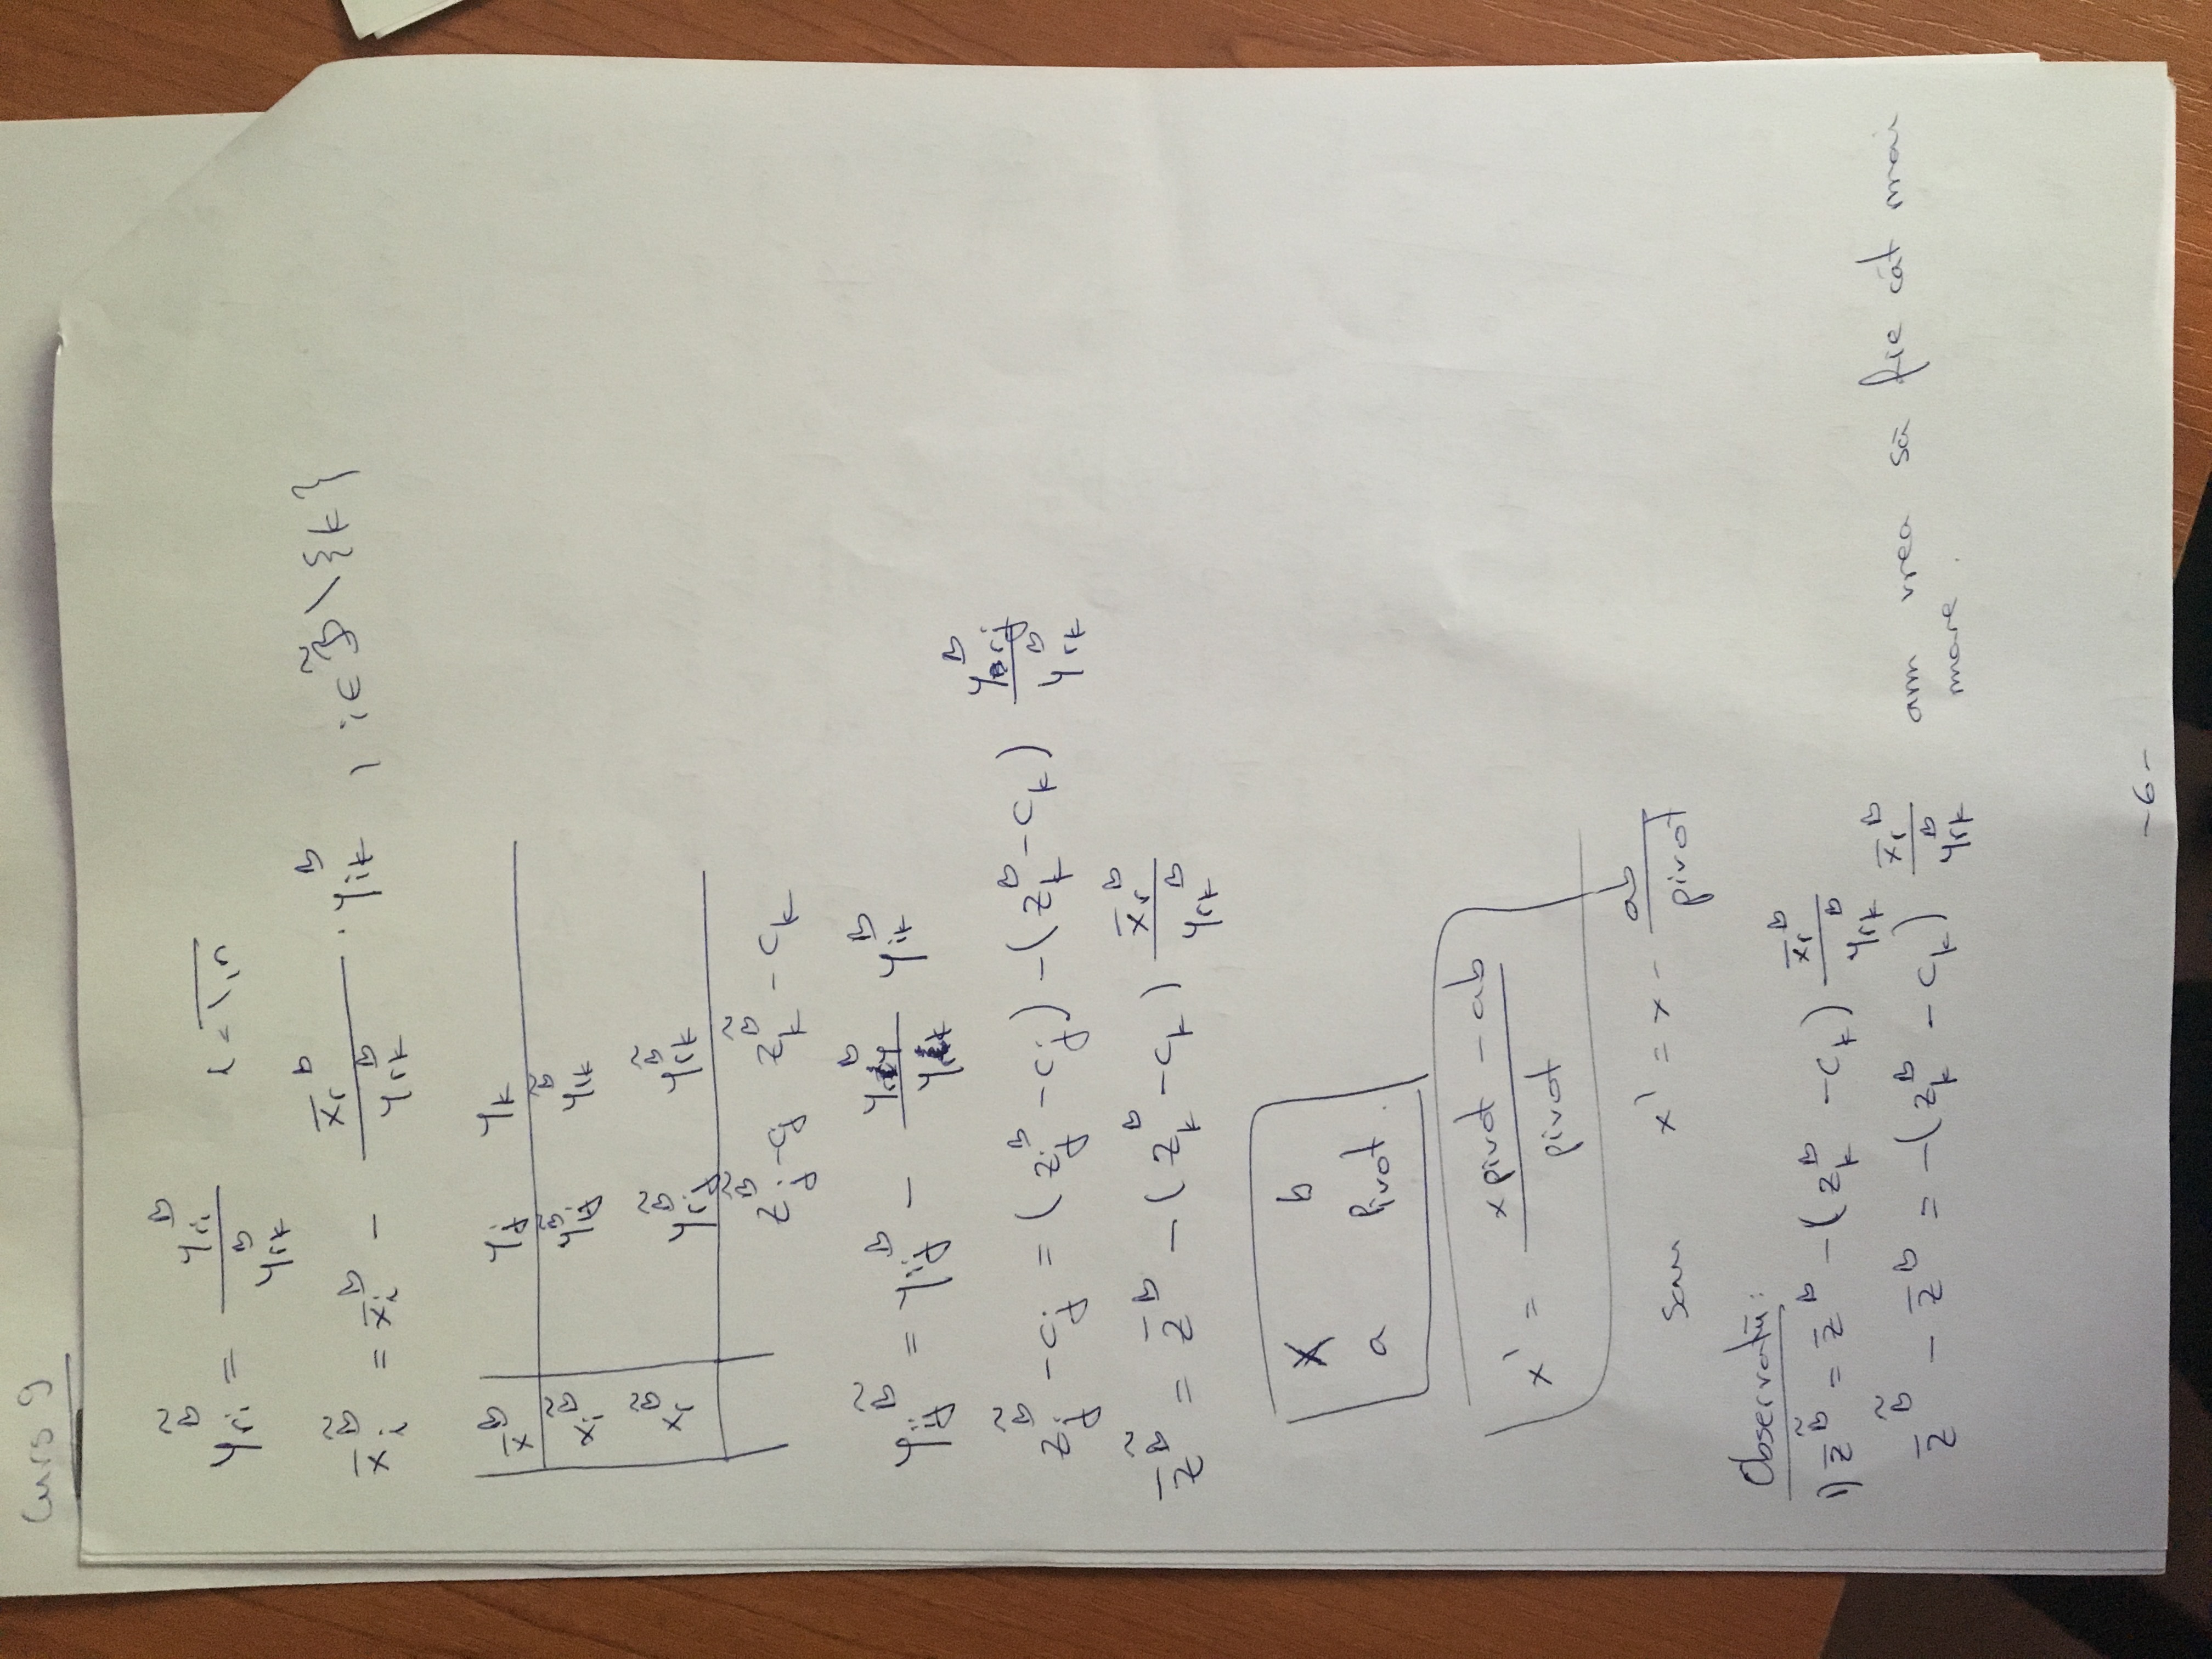 Curs 9
ỹ_ri^B̃ = y_ri^B / y_rk^B   i = 1,n
x̄_i^B̃ = x̄_i^B - x̄_r^B / y_rk^B · y_ik^B , i ∈ B̃ \ {k}
x̄^B̃ y_j y_k
x̄_i^B̃ y_ij^B̃ y_ik^B̃
x̄_r^B̃ y_rj^B̃ y_rk^B̃
z_j^B̃ - c_j z_k^B̃ - c_k
y_ij^B̃ = y_ij^B - y_rj^B / y_rk^B y_ik^B
z_j^B̃ - c_j = (z_j^B - c_j) - (z_k^B - c_k) y_rj^B / y_rk^B
z̄^B̃ = z̄^B - (z_k^B - c_k) x̄_r^B / y_rk^B
x b
a pivot
x' = x pivot - ab / pivot
sau x' = x - ab / pivot
Observații:
1) z̄^B̃ = z̄^B - (z_k^B - c_k) x̄_r^B / y_rk^B
z̄^B̃ - z̄^B = -(z_k^B - c_k) x̄_r^B / y_rk^B am vrea să fie cât mai
mare.
-6-